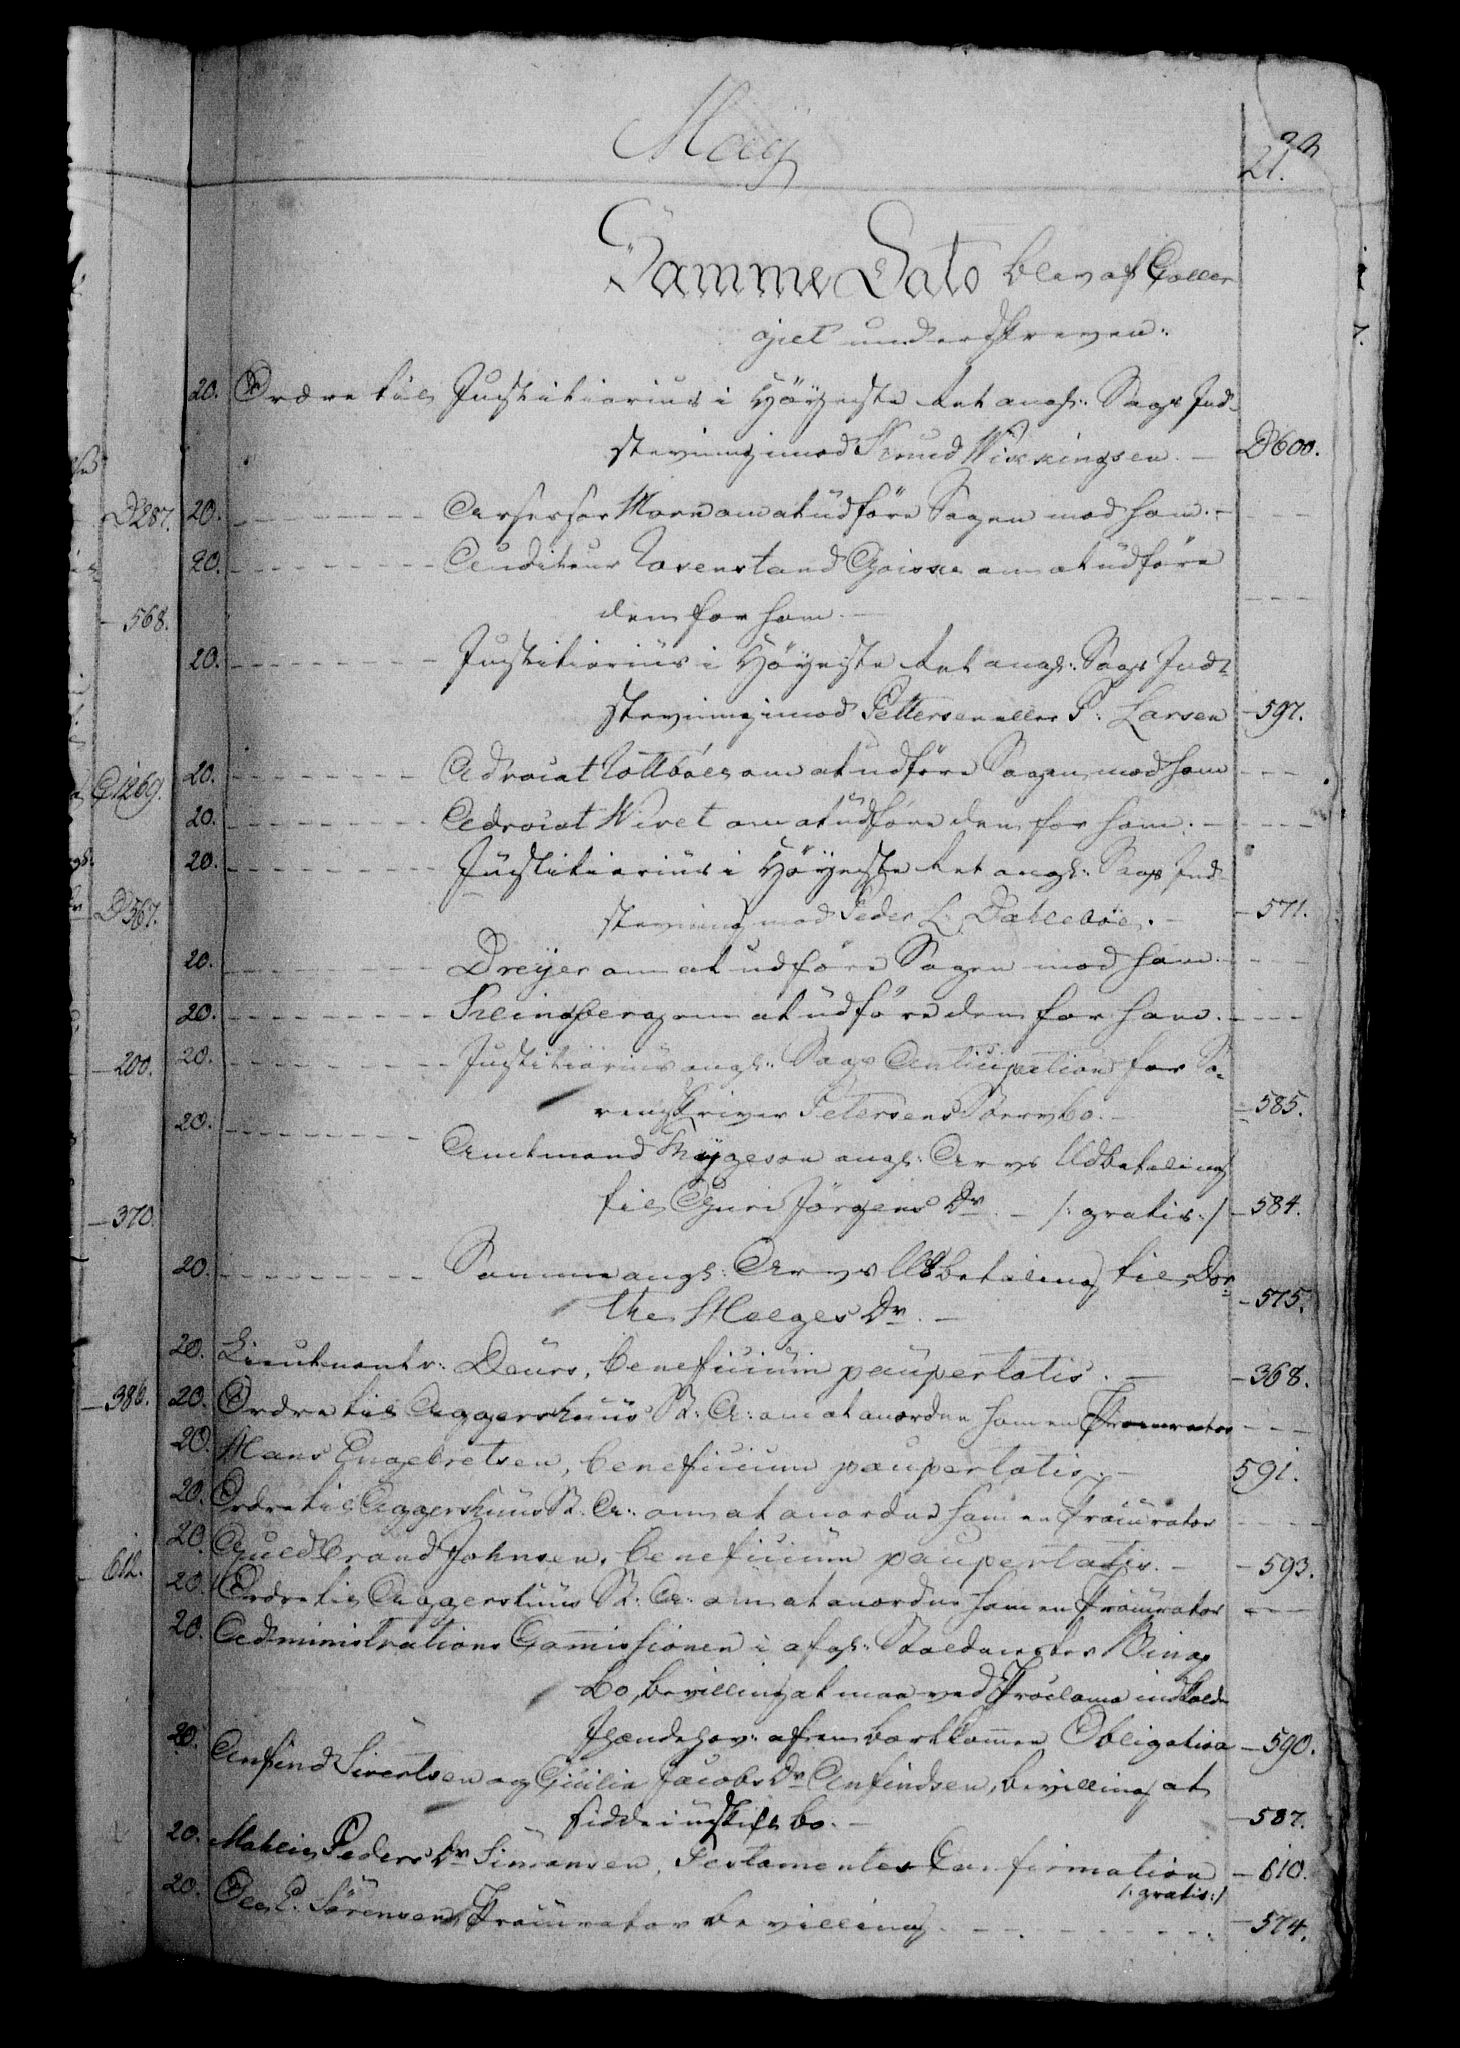 Maÿ
21.
Samme Dato blev af Colle-
giet underskreven:
20. Ordre til Justitiarius i Höÿeste Ret angl: Sags Ind-
stevning imod Knud Wikkingsen. — D600.
20. Assessor Morn om at udföre Sagen mod ham. —
20. Auditeur Rosenstand Goiske om at udföre
dem for ham. —
20. Justitiarius i Höÿeste Ret angl: Sags Ind-
stevning imod Pettersen eller P: Larsen — 597.
20. Advocat Rottböll om at udföre Sagen mod ham
20. Advocat Wivet om at udföre dem for ham. —
20. Justitiarius i Höÿeste Ret angl: Sags Ind-
stevning mod Peder L: Dahleböe. — 571.
20. Dreÿer om at udföre Sagen mod ham.
20. Kleinsberg om at udföre dem for ham.
20. Justitiarius angl: Sags Anticipation for So-
renskriver Petersens Stervbo. — 585.
20. Amtmand Thÿgeson angl: Arvs Udbetaling
til Guri Jörgens Dr. — /: gratis :/ — 584.
20. Samme angl: Arvs Udbetaling til Dor-
the Helges Dr. — 575.
20. Lieutenant v: Deurs, beneficium paupertatis. — 368.
20. Ordre til Aggershuus St: A: om at anordne ham en Procurator
20. Hans Engebretsen, beneficium paupertatis. — 591.
20. Ordre til Aggershuus St: A: om at anordne ham en Procurator
20. Guldbrand Johnsen, beneficium paupertatis. — 593.
20. Ordre til Aggershuus St: A: om at anordne ham en Procurator
20. Administrations Com̄issionen i afg: Staldmester Bings
Bo, bevilling at maa ved Proclama indkalde
Ihændehav: af en bortkom̄en Obligation — 590.
20. Anfind Sivertsen og Cicilia Jacobs Dr Anfindsen, bevilling at
sidde i uskift bo. — 587.
20. Mahlin Peders Dr Simonsen, Testamentes Confirmation — 610.
/: gratis :/
20. Ole P. Sörensen, Procurator bevilling — 574.
D287.
— 568.
G1269.
D567.
— 200.
— 370.
— 386.
612.